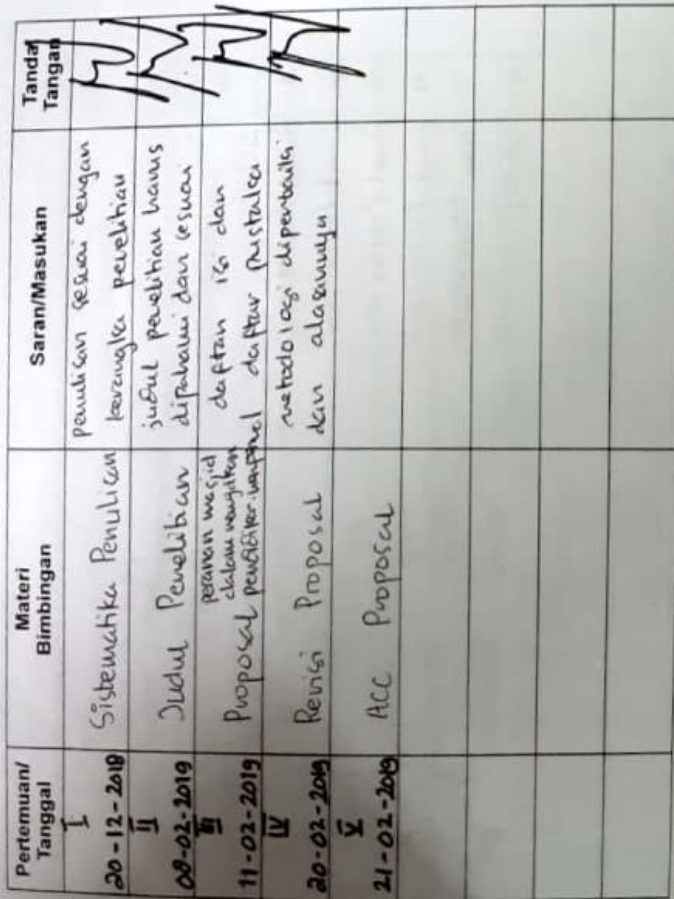 Pertemuan/
Tanggal
Materi
Bimbingan
Saran/Masukan
Tanda
Tangan
I
20-12-2018
Sistematika Penulisan
penulisan sesuai dengan
kerangka penelitian
II
08-02-2019
Judul Penelitian
judul penelitian harus
dipahami dan sesuai
III
11-02-2019
peranan masjid
dalam
Proposal
daftar isi dan
daftar pustaka
IV
20-02-2019
Revisi Proposal
metodologi diperbaiki
dan alasannya
V
21-02-2019
ACC Proposal